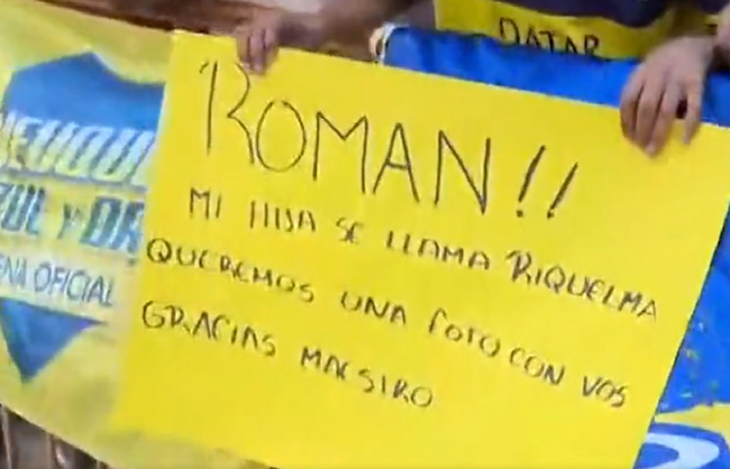 DATAR
ROMAN!!
MI HIJA SE LLAMA RIQUELMA
QUEREMOS UNA FOTO CON VOS
GRACIAS MAESTRO
UL Y OR
NA OFICIAL